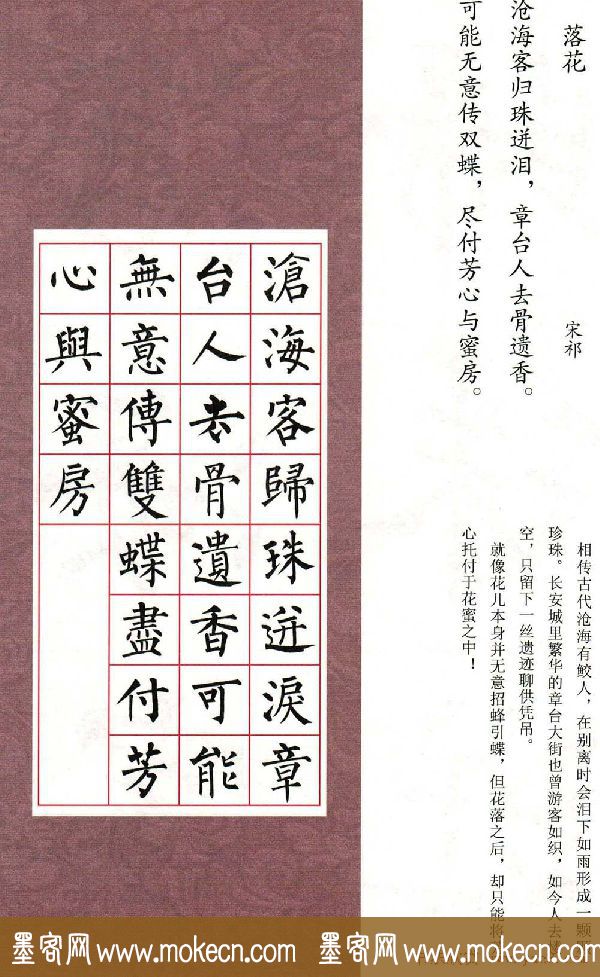 落花
宋祁
沧海客归珠迸泪，章台人去骨遗香。
可能无意传双蝶，尽付芳心与蜜房。
相传古代沧海有鲛人，在别离时会泪下如雨形成一颗
珍珠。长安城里繁华的章台大街也曾游客如织，如今人去楼
空，只留下一丝遗迹聊供凭吊。
就像花儿本身并无意招蜂引蝶，但花落之后，却只能将
心托付于花蜜之中！
滄海客歸珠迸淚章
台人去骨遺香可能
無意傳雙蝶盡付芳
心與蜜房
墨客网 www.mokecn.com 墨客网 www.mokecn.com